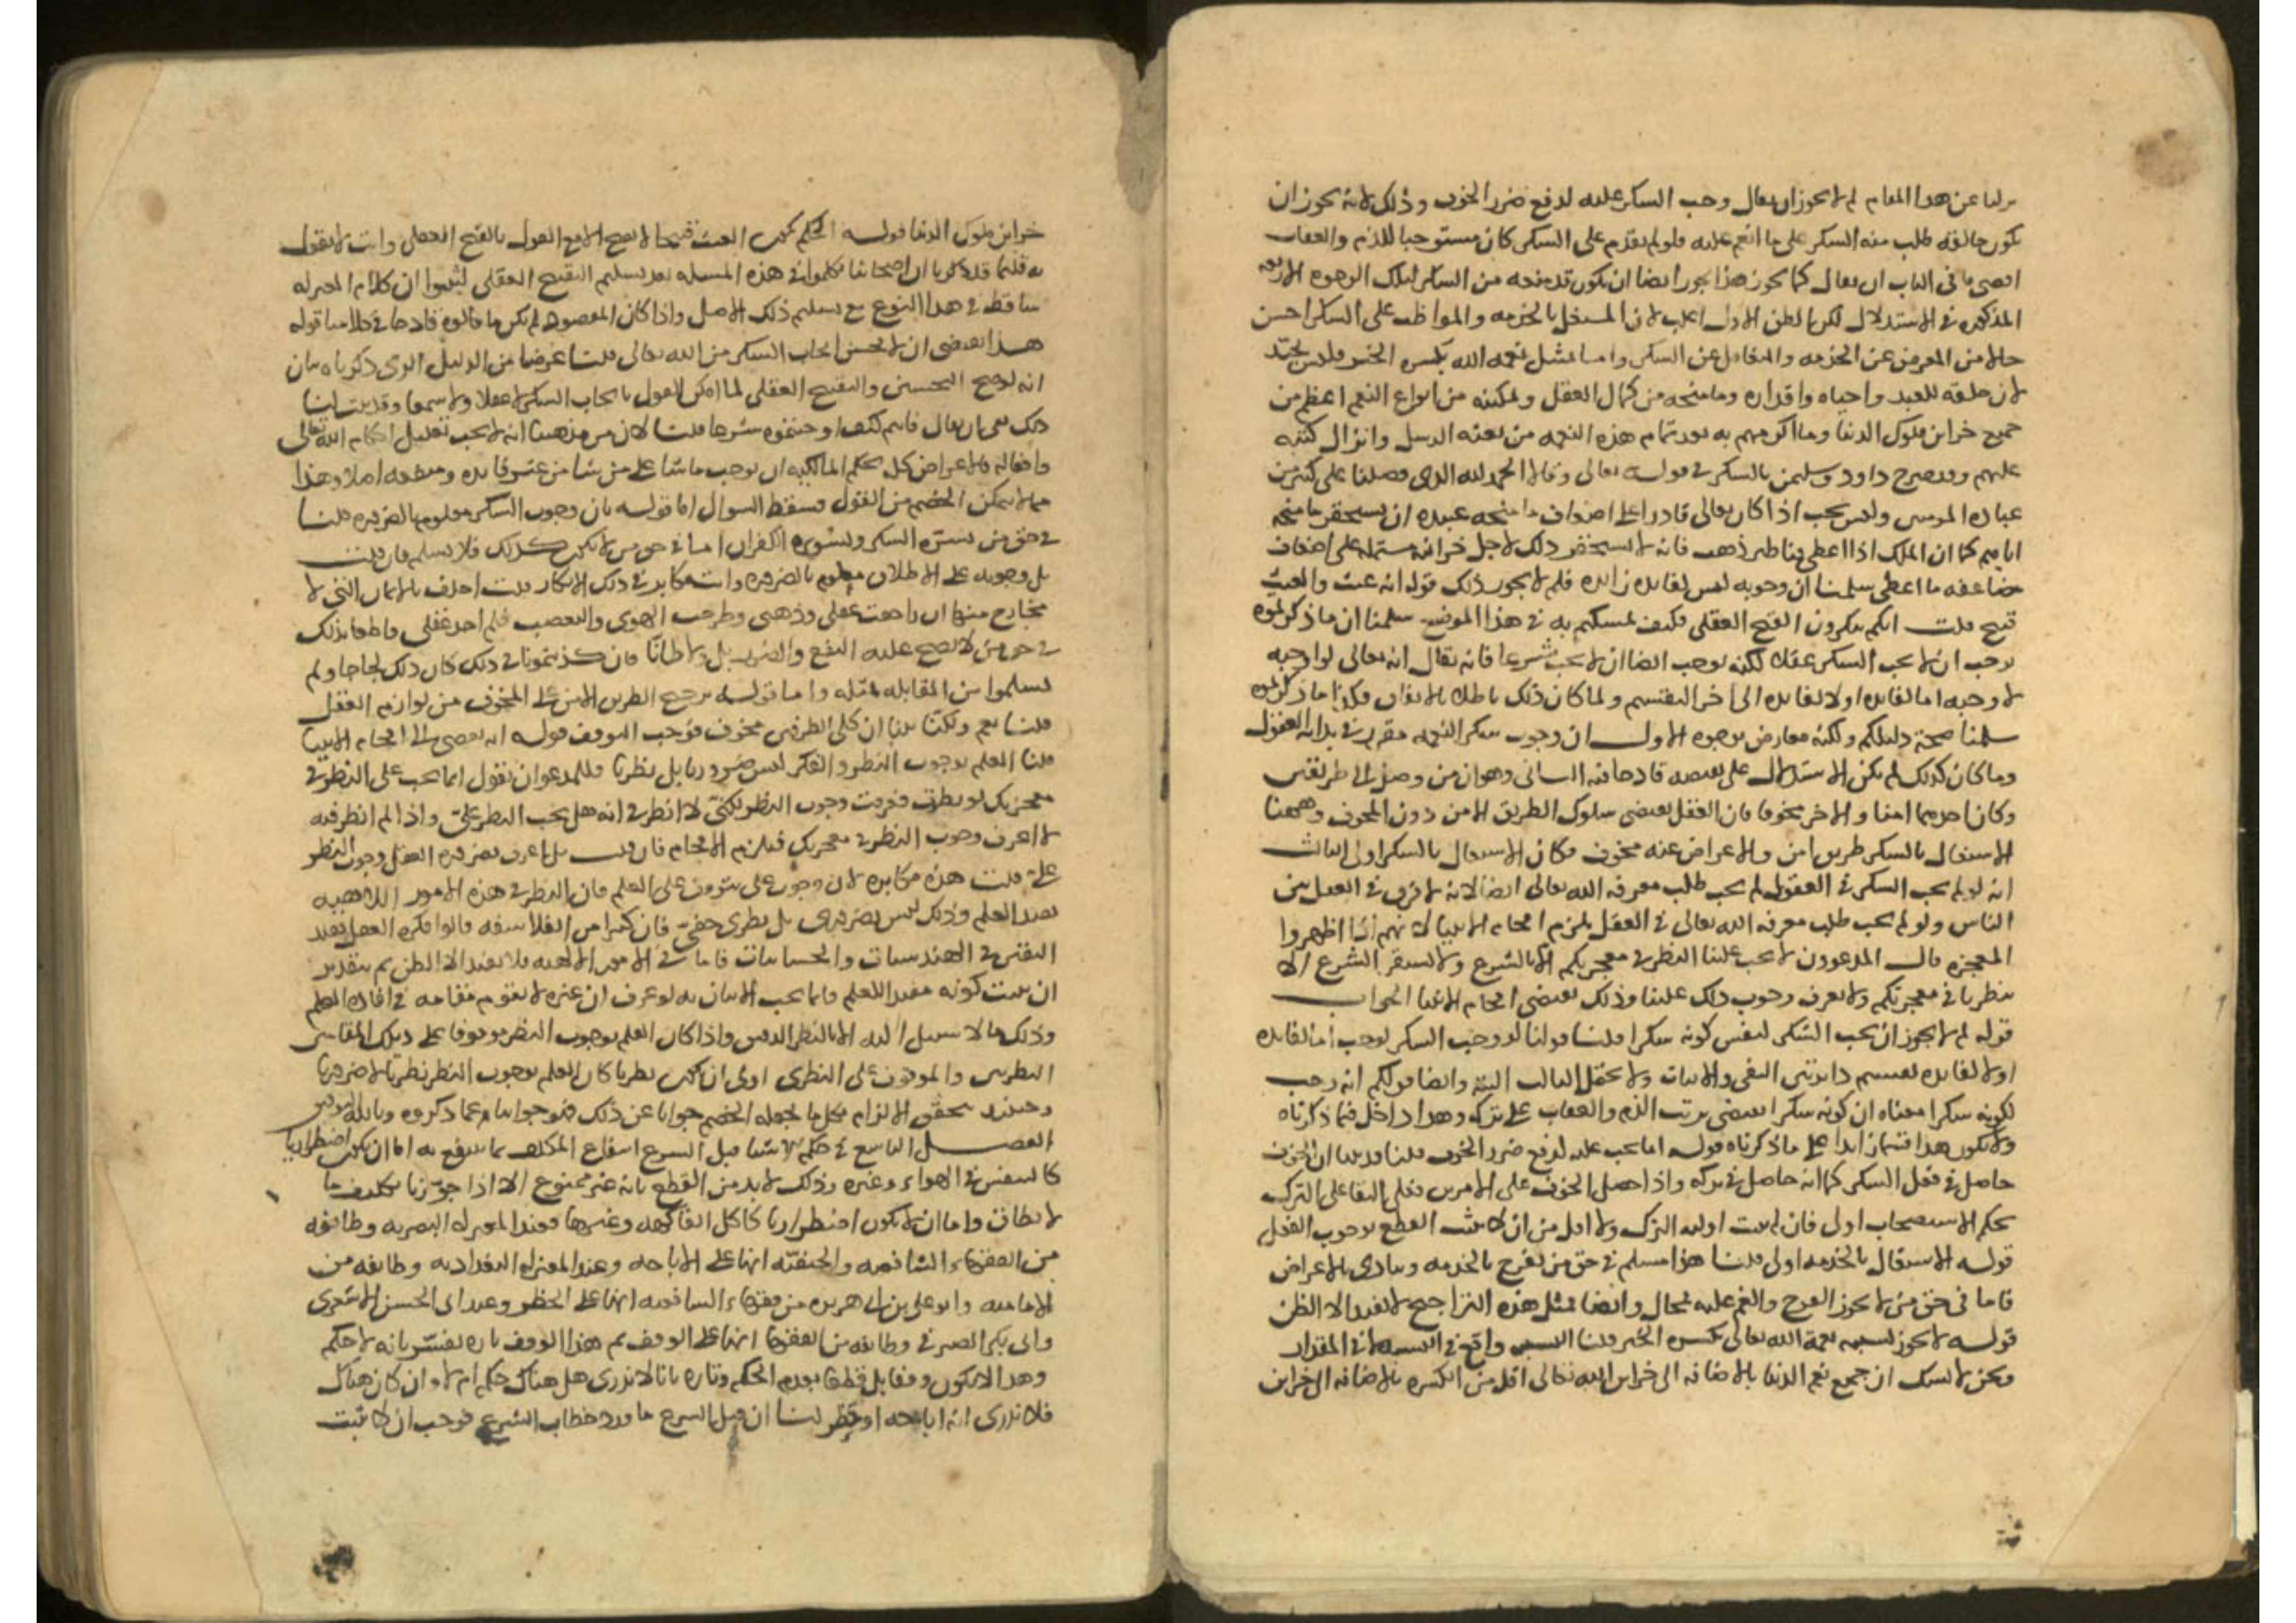 نزلنا عن هذا المقام لم لا يجوز ان يقال وجب الشكر عليه لدفع ضرر الخوف وذلك لانه يجوز ان
يكون خالقه طلب منه الشكر على ما انعم عليه فلو لم يقدم على الشكر كان مستوجبا للذم والعقاب
اقصى ما في الباب ان يقال كما يجوز هذا يجوز ايضا ان يكون قد منعه من الشكر لتلك الوجوه الاربعة
المذكورة في الاستدلال لكن الظن الاول اغلب لان المشتغل بالخدمة والمواظب على الشكر احسن
حالا من المعرض عن الخدمة والمتغافل عن الشكر واما تمثيل نعمه الله بكسرة الخبز فليس بجيد
لان خلقه للعبد واحياه واقداره وما منحه من كمال العقل وتمكينه من انواع النعم اعظم من
جميع خزاين ملوك الدنيا وما اكرمهم به بعد تمام هذه النعمه من بعثه الرسل وانزال كتبه
عليهم وقد صرح داود وسليمن بالشكر في قوله تعالى وقالا الحمد لله الذي فضلنا على كثير من
عباده المومنين وليس يجب اذا كان تعالى قادرا على اضعاف ما منحه عبيده ان يستحقر ما منحه
اياهم كما ان الملك اذا اعطى قناطير ذهب فانه لا يستحقر ذلك لاجل خزانه مشتملة على اضعاف
مضاعفه ما اعطى سلمنا ان وجوبه ليس لفايده زايده فلم لا يجوز ذلك قوله انه عبث والعبث
قبيح قلت انكم تنكرون القبح العقلي فكيف تمسكتم به في هذا الموضع سلمنا ان ما ذكرتموه
يوجب ان لا يجب الشكر عقلا لكنه يوجب ايضا ان لا يجب شرعا فانه يقال انه تعالى لو اوجبه
لاوجبه اما لفايده او لا لفايده الى اخر التقسيم ولما كان ذلك باطلا بالاتفاق فكذا ما ذكرتموه
سلمنا صحة دليلكم ولكنه معارض بوجوه الاول ان وجوب شكر النعمه مقرر في بداية العقول
وما كان كذلك لم يكن الاستدلال على نقيضه قادحا فيه الثاني وهو ان من وصل الى طريقين
وكان احدهما امنا والاخر مخوفا فان العقل يقتضي سلوك الطريق الامن دون المخوف وههنا
الاشتغال بالشكر طريق امن والاعراض عنه مخوف فكان الاشتغال بالشكر اولى الثالث
انه لو لم يجب الشكر في العقول لم يجب طلب معرفه الله تعالى ايضا لانه لا فرق في العقل بين
الناس ولو لم يجب طلب معرفه الله تعالى في العقل يلزم افحام الانبيا لانهم اذا اظهروا
المعجزه قال المدعوون لا يجب علينا النظر في معجزتكم الا بالشرع ولا يستقر الشرع الا
بنظرنا في معجزتكم ولا نعرف وجوب ذلك علينا وذلك يقتضي افحام الانبيا الجواب
قوله لم لا يجوز ان يجب الشكر لنفس كونه شكرا قلنا قولنا لو وجب الشكر لوجب اما لفايده
او لا لفايده تقسيم داير بين النفي والاثبات ولا يحتمل الثالث البتة وايضا قولكم انه وجب
لكونه شكرا معناه ان كونه شكرا يقتضي ترتب الذم والعقاب على تركه وهذا داخل فيما ذكرناه
ولا يكون هذا قسما زايدا على ما ذكرناه قوله انما يجب عليه لدفع ضرر الخوف قلنا قد بينا ان الخوف
حاصل في فعل الشكر كما انه حاصل في تركه واذا حصل الخوف على الامرين فعلى البقا على الترك
بحكم الاستصحاب اولى فان لم تثبت اولويه الترك ولا اقل من ان لا يثبت القطع بوجوب الفعل
قوله الاشتغال بالخدمه اولى قلنا هذا مسلم في حق من يفرح بالخدمه ويتاذى بالاعراض
فاما في حق من لا يجوز الفرح والغم عليه فمحال وايضا فمثل هذه التراجيح لا تفيد الا الظن
قوله لا يجوز تشبيه نعمة الله تعالى بكسره الخبز قلنا التشبيه واقع في النسبه لا في المقدار
ونحن لا نشك ان جميع نعم الدنيا بالاضافه الى خزاين الله تعالى اقل من الكسره بالاضافه الى خزاين
خزاين ملوك الدنيا قوله الحكم بكون العبث قبيحا لا يصح الا مع القول بالقبح العقلي وانت لا تقول
به قلنا قد ذكرنا ان اصحابنا تكلموا في هذه المسله بعد تسليم التقبيح العقلي ليثبتوا ان كلام المعتزله
ساقط في هذا الفرع مع تسليم ذلك الاصل واذا كان المقصود لم يكن ما قالوه قادحا في كلامنا قوله
هذا يقتضي ان لا يحسن ايجاب الشكر من الله تعالى قلنا غرضنا من الدليل الذي ذكرناه بيان
انه لو صح التحسين والتقبيح العقلي لما امكن القول بايجاب الشكر لا عقلا ولا سمعا وقد ثبت لنا
ذلك بقي ان يقال فانتم كيف اوجبتموه شرعا قلنا لان من مذهبنا انه لا يجب تعليل احكام الله تعالى
وافعاله بالاغراض فله بحكم المالكيه ان يوجب ما شا على من شا من غير فايده ومنفعه اصلا وهذا
مما لا يمكن الخصم من القول فسقط السوال اما قوله بان وجوب الشكر معلوم بالضروره قلنا
في حق من يسره الشكر ويسوءه الكفران اما في حق من لا يكون كذلك فلا نسلم فان قلت
بل وجوبه على الاطلاق معلوم بالضروره وانت مكابر في ذلك الانكار قلت احلف بالايمان التي لا
مخارج منها ان راجعت عقلي وذهني وطرحت الهوى والتعصب فلم اجد عقلي قاطعا بذلك
في حق من لا يصح عليه النفع والضرر بل ولا ظانا فان كذبتمونا في ذلك كان ذلك لجاجا ولم
تسلموا من المقابله بمثله واما قوله ترجيح الطريق الامن على المخوف من لوازم العقل
قلنا نعم ولكنا بينا ان كلى الطرفين مخوف فوجب التوقف قوله انه يفضي الى افحام الانبيا
قلنا العلم بوجوب النظر والفكر ليس ضروريا بل نظريا فللمدعو ان يقول انما يجب على النظر في
معجزتك لو نظرت فعرفت وجوب النظر لكني لا انظر في انه هل يجب النظر علي واذا لم انظر فيه
لا اعرف وجوب النظر في معجزتك فيلزم الافحام فان قلت بل يعرف بضرورة العقل وجوب النظر
علي قلت هذه مكابره لان وجوبه على يتوقف على العلم بان النظر في هذه الامور الالاهيه
يفيد العلم وذلك ليس بضروري بل نظري خفي فان كثيرا من الفلاسفه قالوا فكرة العقل تفيد
اليقين في الهندسيات والحسابيات فاما في الامور الالهيه فلا تفيد الا الظن ثم بتقدير
ان يثبت كونه مفيدا للعلم فانما يجب الاتيان به لو عرف ان غيره لا يقوم مقامه في افاده العلم
وذلك مما لا سبيل اليه الا بالنظر الدقيق واذا كان العلم بوجوب النظر موقوفا على ذينك المقامين
النظريين والموقوف على النظري اولى ان يكون نظريا كان العلم بوجوب النظر نظريا لا ضروريا
وحينئذ يتحقق الالزام فكل ما يجعله الخصم جوابا عن ذلك فهو جوابنا عما ذكروه وبالله التوفيق
الفصل التاسع في حكم الاشيا قبل الشرع انتفاع المكلف بما ينتفع به اما ان يكون اضطراريا
كالتنفس في الهواء وغيره وذلك لا بد من القطع بانه غير ممنوع الا اذا جوزنا تكليف ما
لا يطاق واما ان لا يكون اضطراريا كاكل الفاكهه وغيرها فعند المعتزله البصريه وطائفه
من الفقهاء الشافعيه والحنفيه انها على الاباحه وعند المعتزله البغداديه وطايفه من
الاماميه وابو علي بن ابي هريره من فقهاء الشافعيه انها على الحظر وعند ابي الحسن الاشعري
وابي بكر الصيرفي وطايفه من الفقها انها على الوقف ثم هذا الوقف تاره يفسر بانه لا حكم
وهذا لا يكون وقفا بل قطعا بعدم الحكم وتاره بانا لا ندري هل هناك حكم ام لا وان كان هناك
فلا ندري انه اباحه او حظر لنا ان قبل الشرع ما ورد خطاب الشرع فوجب ان لا يثبت